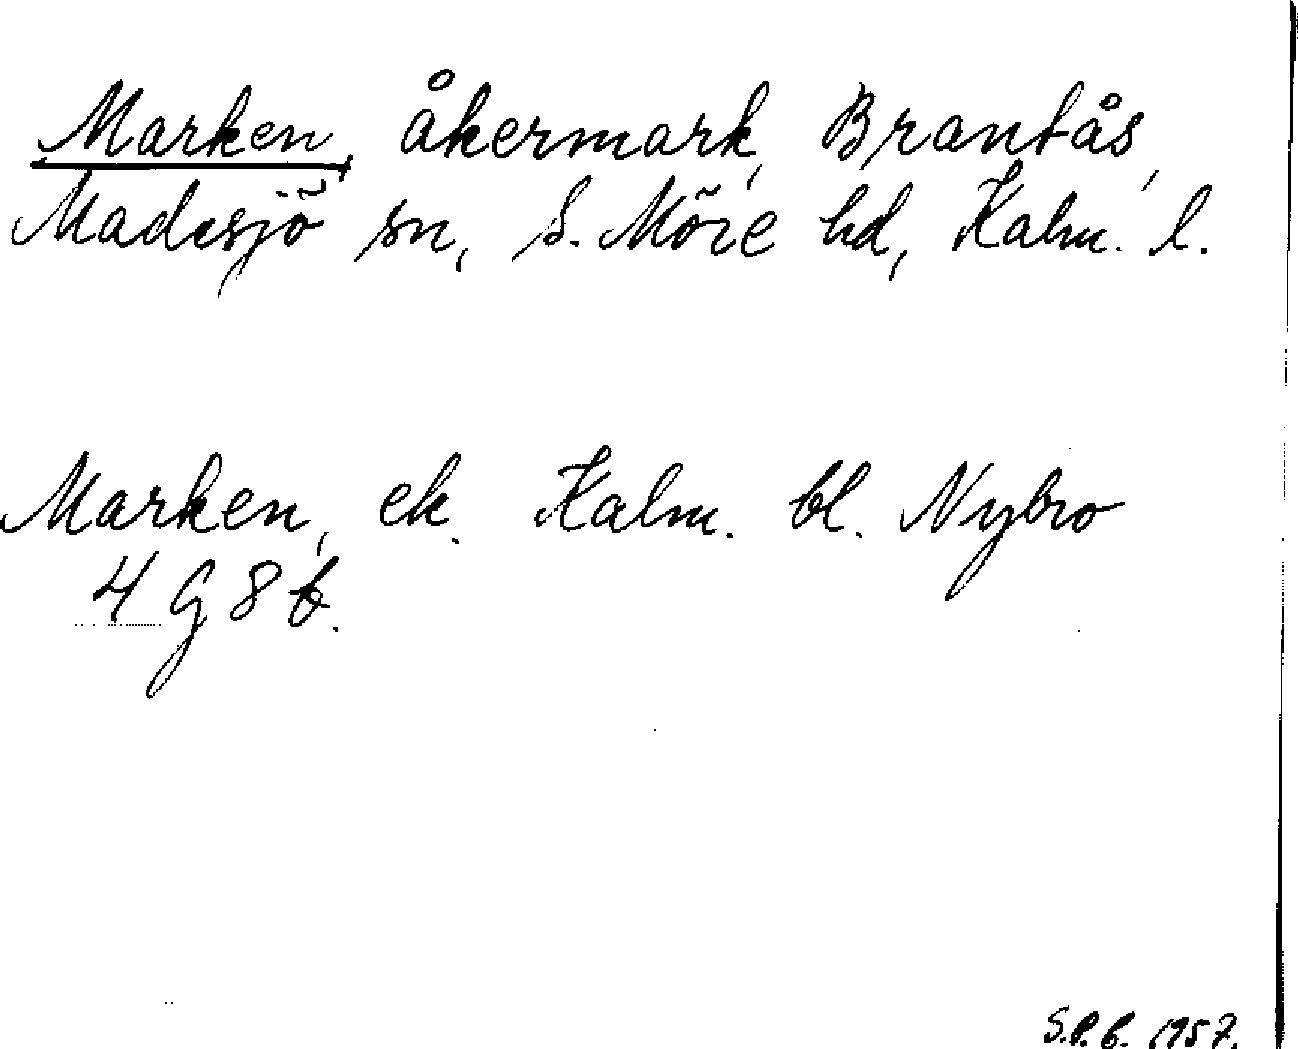 Marken, åkermark, Brantås,
Madesjö sn, S. Möre hd, Kalm. l.
Marken, ek. Kalm. bl. Nybro
4 G 8 b.
S.P.B. 1957.